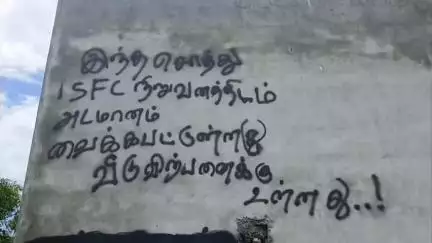 இந்த சொத்து
ISFC நிறுவனத்திடம்
அடமானம்
வைக்கபட்டுள்ளது
வீடு விற்பனைக்கு
உள்ளது..!